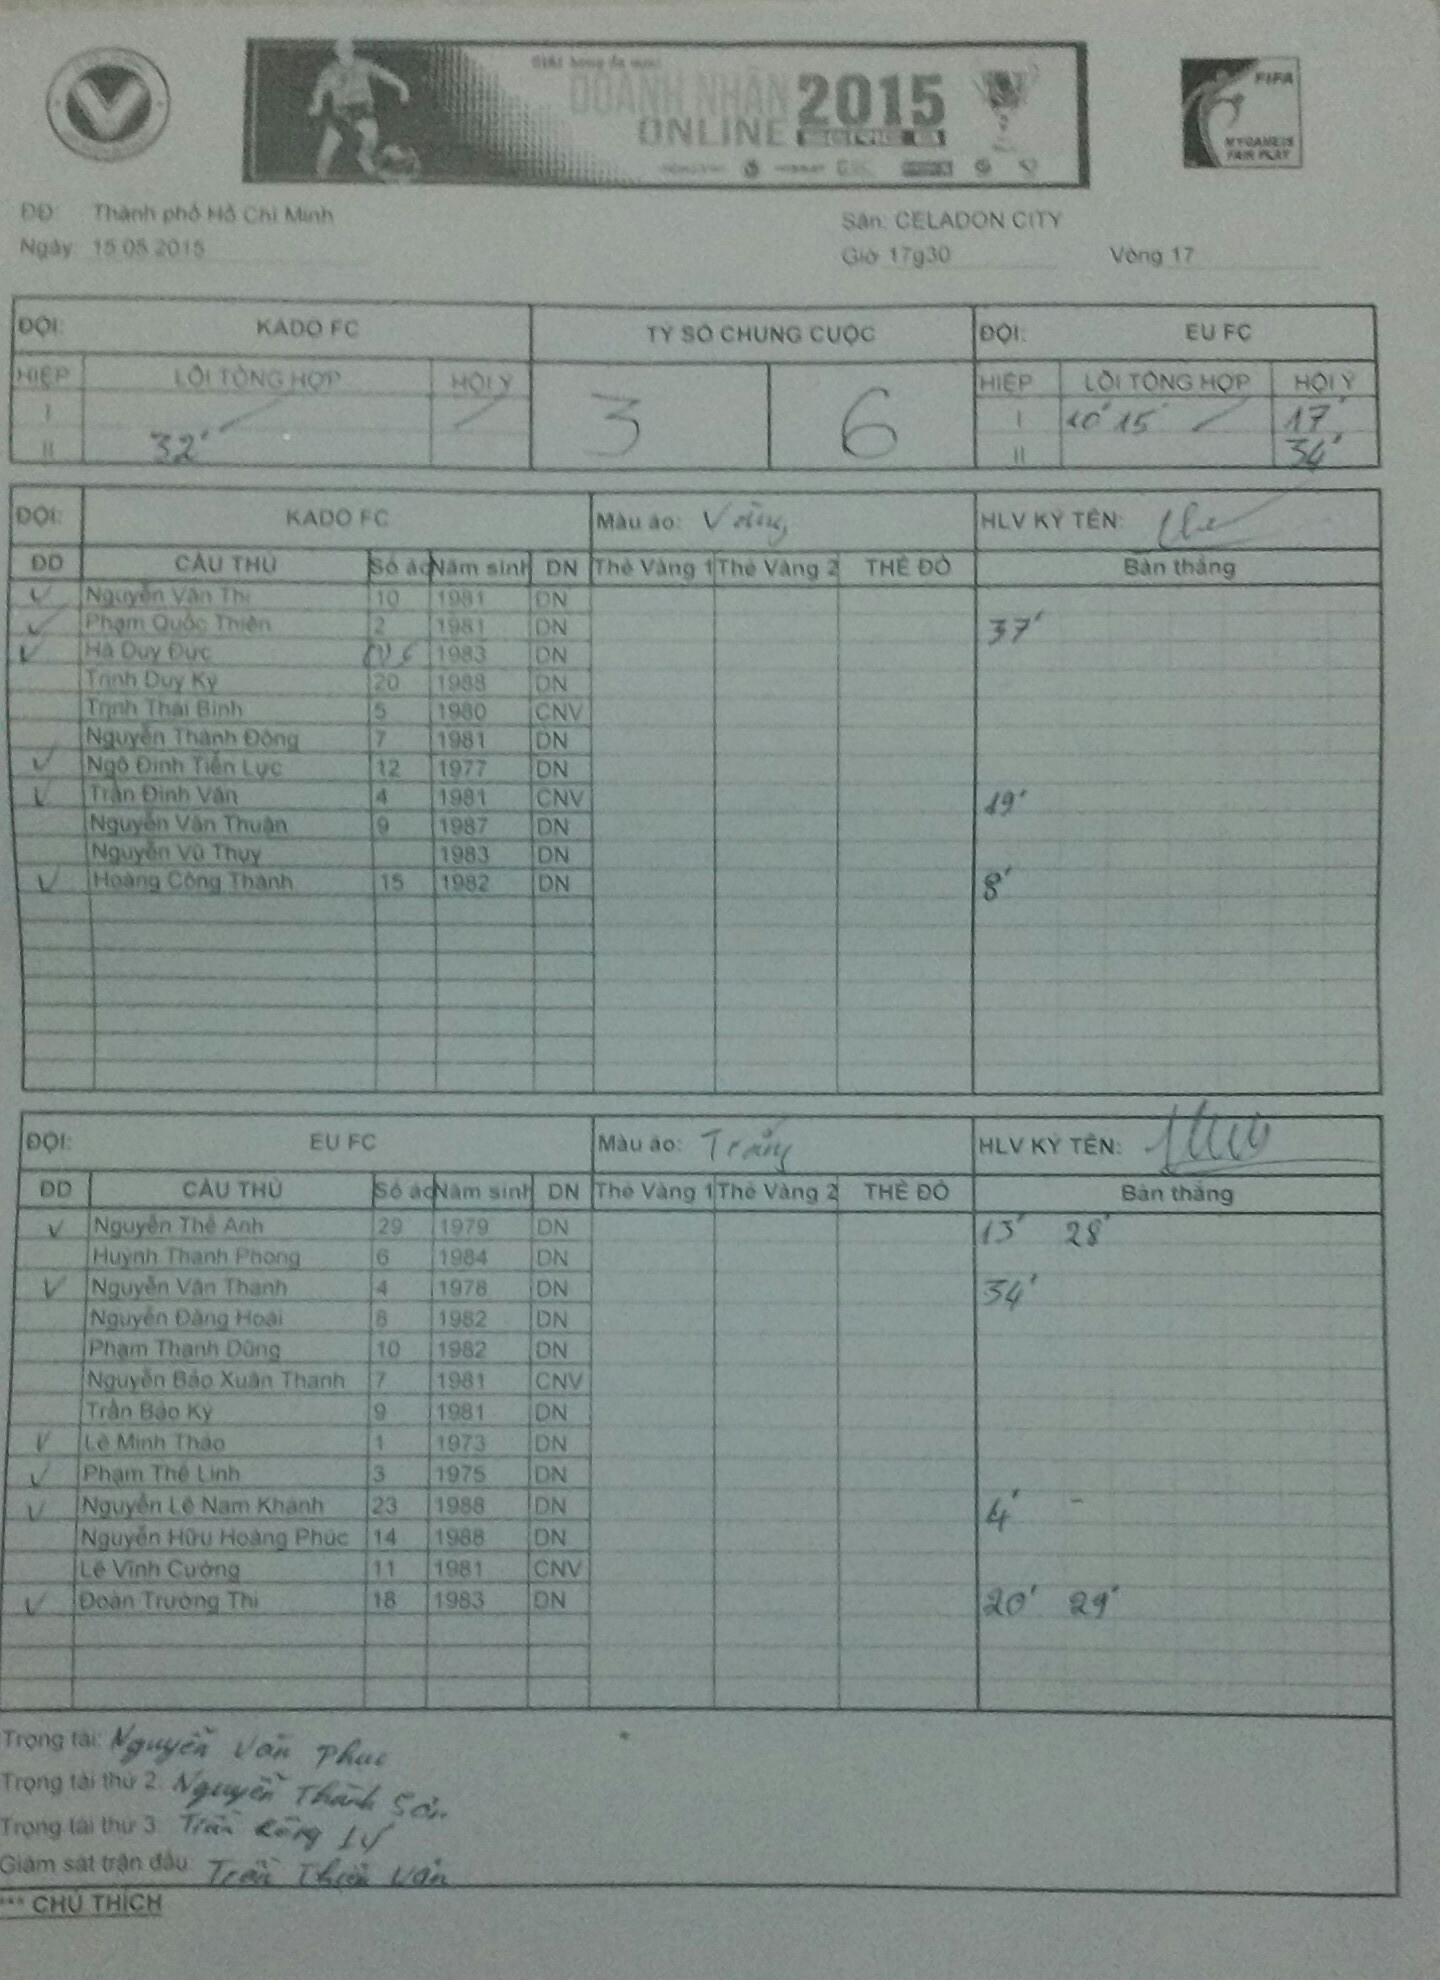 DOANH NHÂN 2015
ONLINE
FIFA
MY GAME IS
FAIR PLAY
ĐĐ: Thành phố Hồ Chí Minh Sân: CELADON CITY
Ngày: 15.05.2015 Giờ 17g30 Vòng 17
ĐỘI: KADO FC TỶ SỐ CHUNG CUỘC ĐỘI: EU FC
HIỆP LỖI TỔNG HỢP HỘI Ý 3 6 HIỆP LỖI TỔNG HỢP HỘI Ý
I I 10' 15' 17'
II 32' II 34'
ĐỘI: KADO FC Màu áo: Vàng HLV KÝ TÊN:
DD CẦU THỦ Số áo Năm sinh DN Thẻ Vàng 1 Thẻ Vàng 2 THẺ ĐỎ Bàn thắng
✓ Nguyễn Văn Thi 10 1981 DN
✓ Phạm Quốc Thiên 2 1981 DN 37'
✓ Hà Duy Đức 1983 DN
Trịnh Duy Kỳ 20 1988 DN
Trịnh Thái Bình 5 1980 CNV
Nguyễn Thành Đông 7 1981 DN
✓ Ngô Đình Tiến Lực 12 1977 DN
✓ Trần Đình Văn 4 1981 CNV 19'
Nguyễn Văn Thuận 9 1987 DN
Nguyễn Vũ Thụy 1983 DN
✓ Hoàng Công Thành 15 1982 DN 8'
ĐỘI: EU FC Màu áo: Trắng HLV KÝ TÊN:
DD CẦU THỦ Số áo Năm sinh DN Thẻ Vàng 1 Thẻ Vàng 2 THẺ ĐỎ Bàn thắng
✓ Nguyễn Thế Anh 29 1979 DN 13' 28'
Huỳnh Thanh Phong 6 1984 DN
✓ Nguyễn Văn Thanh 4 1978 DN 34'
Nguyễn Đăng Hoài 8 1982 DN
Phạm Thanh Dũng 10 1982 DN
Nguyễn Bảo Xuân Thanh 7 1981 CNV
Trần Bảo Kỳ 9 1981 DN
✓ Lê Minh Thảo 1 1973 DN
✓ Phạm Thế Linh 3 1975 DN
✓ Nguyễn Lê Nam Khánh 23 1988 DN 4' -
Nguyễn Hữu Hoàng Phúc 14 1988 DN
Lê Vĩnh Cường 11 1981 CNV
✓ Đoàn Trường Thi 18 1983 DN 20' 29'
Trọng tài: Nguyễn Văn Phúc
Trọng tài thứ 2: Nguyễn Thành Sơn
Trọng tài thứ 3: Trần
Giám sát trận đấu: Trần Văn
*** CHÚ THÍCH